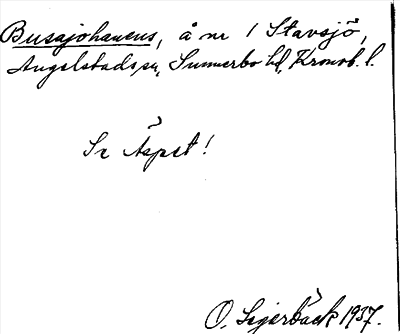 Busajohanens, å nr 1 Stavsjö,
Angelstads sn, Sunnerbo hd, Kronob. l.
Se Äspet!
O. Sejerbäck 1937.